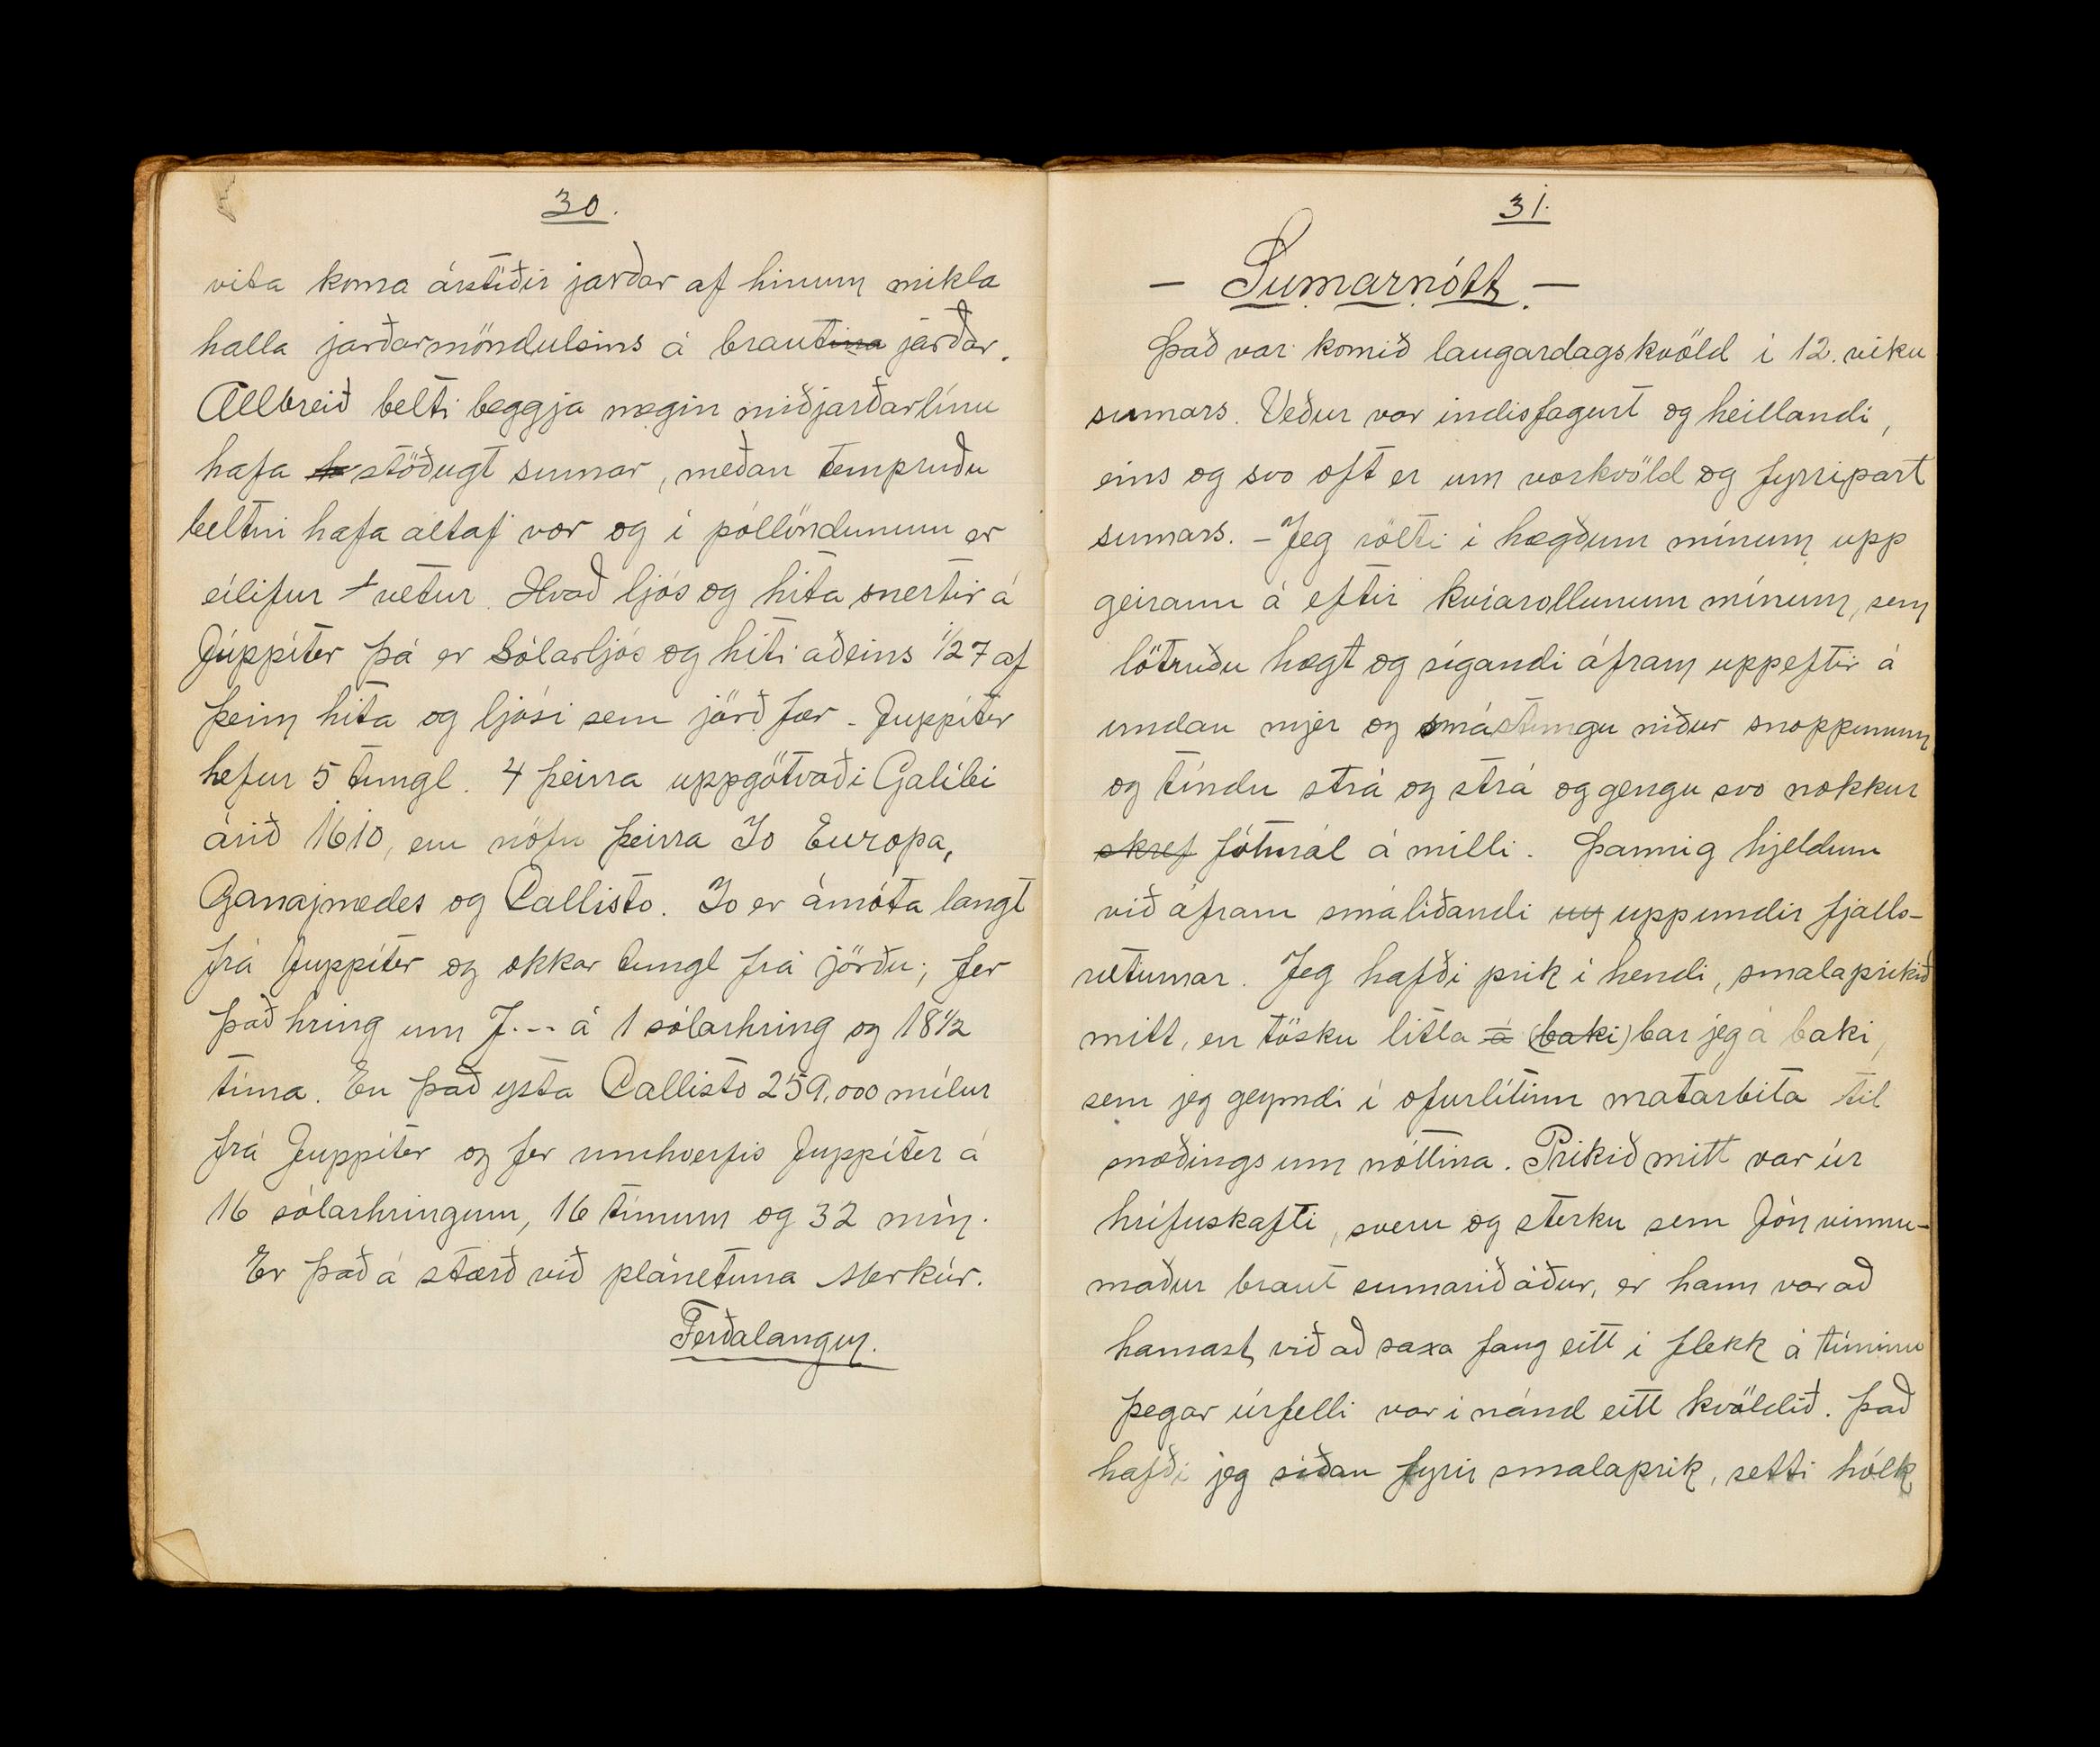 30.
vita koma árstíðir jarðar af hinum mikla
halla jarðarmöndulsins á brautinna jarðar.
Allbreið belti beggja megin miðjarðarlínu
hafa stöðugt sumar, meðan tempruðu
beltin hafa altaf vor og í póllöndunum er
eilífur vetur. Hvað ljós og hita snertir á
Júppíter þá er Sólarljós og hiti aðeins 1/27 af
þeim hita og ljósi sem jörð fær - Juppíter
hefur 5 tungl. 4 þeirra uppgötvaði Galílei
árið 1610, eru nöfn þeirra Jo Europa,
Ganajmedes og Callisto. Jo er ámóta langt
frá Juppíter og okkar tungl frá jörðu; fer
það hring um J--- á 1 sólarhring og 18 1/2
tíma. En það ysta Callisto 259,000 mílur
frá Juppíter og fer umhverfis Juppíter á
16 sólarhringum, 16 tímum og 32 mín.
Er það á stærð við plánetuna Merkúr.
Ferðalangur.
31.
- Sumarnótt. -
Það var komið laugardagskvöld í 12. viku
sumars. Veður var indisfagurt og heillandi,
eins og svo oft er um vorkvöld og fyrripart
sumars. - Jeg rölti í hægðum mínum upp
geirann á eftir kvíarollunum mínum, sem
lötruðu hægt og sígandi áfram uppeftir á
undan mjer og smástungu niður snoppunum
og tíndu strá og strá og gengu svo nokkur
skref fótmál á milli. Þannig hjeldum
við áfram smálíðandi uppundir fjalls-
ræturnar. Jeg hafði prik í hendi, smalaprikið
mitt, en tösku litla á (baki) bar jeg á baki,
sem jeg geymdi í ofurlítinn matarbita til
næðings um nóttina. Prikið mitt var úr
hrífuskafti, sveru og sterku sem Jón vinnu-
maður braut sumarið áður, er hann var að
hamast við að saxa fang eitt í flekk á túninu
þegar úrfelli var í nánd eitt kvöldið. Það
hafði jeg síðan fyrir smalaprik, setti hólk